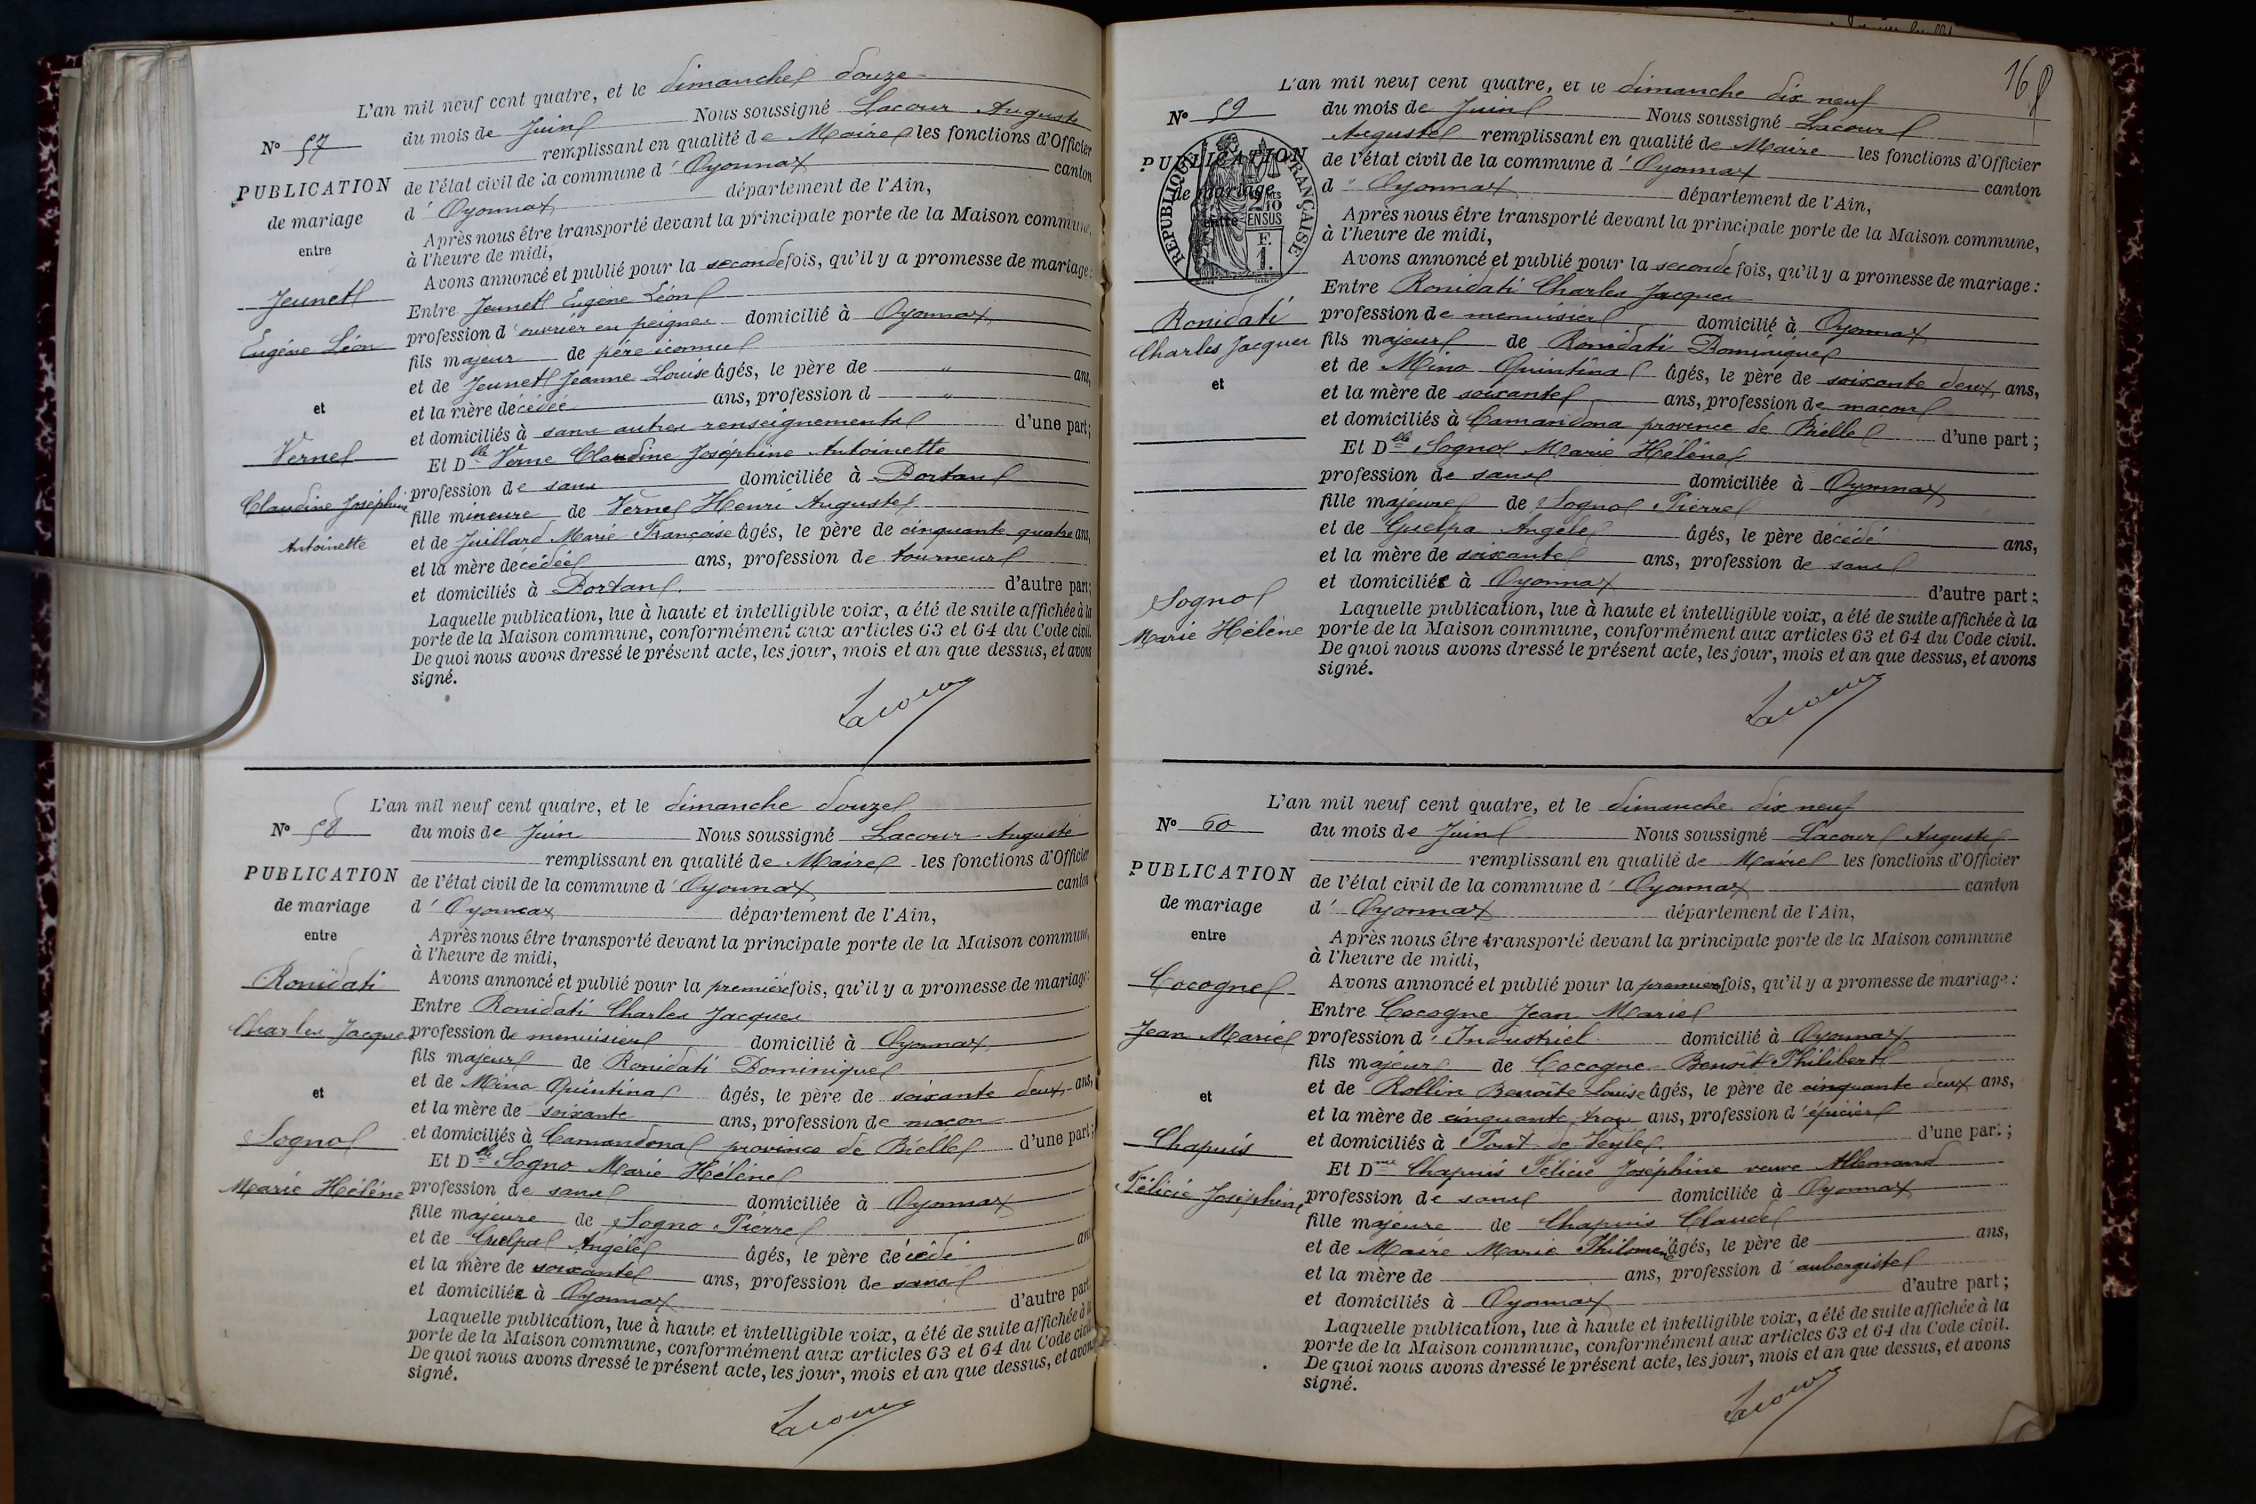 L'an mil neuf cent quatre, et le dimanche douze
N° 57
du mois de Juin Nous soussigné Lacour Auguste
remplissant en qualité de Maire les fonctions d'Officier
PUBLICATION
de mariage
entre
de l'état civil de la commune d'Oyonnax canton
d'Oyonnax département de l'Ain,
Après nous être transporté devant la principale porte de la Maison commune,
à l'heure de midi,
Avons annoncé et publié pour la seconde fois, qu'il y a promesse de mariage:
Jeunet
Eugène Léon
et
Verne
Claudine Joséphine
Antoinette
Entre Jeunet Eugène Léon
profession d'ouvrier en peignes domicilié à Oyonnax
fils majeur de père iconnu
et de Jeunet Jeanne Louise âgés, le père de " ans,
et la mère décédée ans, profession d "
et domiciliés à sans autres renseignements d'une part;
Et Dlle Verne Claudine Joséphine Antoinette
profession de sans domiciliée à Dortan
fille mineure de Verne Henri Auguste
et de Juillard Marie Françoise âgés, le père de cinquante quatre ans,
et la mère décédée ans, profession de tourneur
et domiciliés à Dortan d'autre part;
Laquelle publication, lue à haute et intelligible voix, a été de suite affichée à la
porte de la Maison commune, conformément aux articles 63 et 64 du Code civil.
De quoi nous avons dressé le présent acte, les jour, mois et an que dessus, et avons
signé.
Lacour
L'an mil neuf cent quatre, et le dimanche douze
N° 58
du mois de Juin Nous soussigné Lacour Auguste
remplissant en qualité de Maire les fonctions d'Officier
PUBLICATION
de mariage
entre
de l'état civil de la commune d'Oyonnax canton
d'Oyonnax département de l'Ain,
Après nous être transporté devant la principale porte de la Maison commune,
à l'heure de midi,
Avons annoncé et publié pour la première fois, qu'il y a promesse de mariage:
Ronidati
Charles Jacques
et
Sogno
Marie Hélène
Entre Ronidati Charles Jacques
profession de menuisier domicilié à Oyonnax
fils majeur de Ronidati Dominique
et de Mino Quintina âgés, le père de soixante deux ans,
et la mère de soixante ans, profession de maçon
et domiciliés à Camandona province de Bielle d'une part;
Et Dlle Sogno Marie Hélène
profession de sans domiciliée à Oyonnax
fille majeure de Sogno Pierre
et de Guelpa Angèle âgés, le père décédé ans
et la mère de soixante ans, profession de sans
et domiciliée à Oyonnax d'autre part
Laquelle publication, lue à haute et intelligible voix, a été de suite affichée à la
porte de la Maison commune, conformément aux articles 63 et 64 du Code civil
De quoi nous avons dressé le présent acte, les jour, mois et an que dessus, et avons
signé.
Lacour
16
L'an mil neuf cent quatre, et le dimanche dix neuf
N° 59
du mois de Juin Nous soussigné Lacour
Auguste remplissant en qualité de Maire les fonctions d'Officier
PUBLICATION
de mariage
entre
RÉPUBLIQUE FRANÇAISE
2/10
EN SUS
E.
1.
de l'état civil de la commune d'Oyonnax canton
d'Oyonnax département de l'Ain,
Après nous être transporté devant la principale porte de la Maison commune,
à l'heure de midi,
Avons annoncé et publié pour la seconde fois, qu'il y a promesse de mariage:
Ronidati
Charles Jacques
et
Sogno
Marie Hélène
Entre Ronidati Charles Jacques
profession de menuisier domicilié à Oyonnax
fils majeur de Ronidati Dominique
et de Mino Quintina âgés, le père de soixante deux ans,
et la mère de soixante ans, profession de maçon
et domiciliés à Camandona province de Bielle d'une part;
Et Dlle Sogno Marie Hélène
profession de sans domiciliée à Oyonnax
fille majeure de Sogno Pierre
et de Guelpa Angèle âgés, le père décédé ans,
et la mère de soixante ans, profession de sans
et domiciliée à Oyonnax d'autre part;
Laquelle publication, lue à haute et intelligible voix, a été de suite affichée à la
porte de la Maison commune, conformément aux articles 63 et 64 du Code civil.
De quoi nous avons dressé le présent acte, les jour, mois et an que dessus, et avons
signé.
Lacour
L'an mil neuf cent quatre, et le dimanche dix neuf
N° 60
du mois de Juin Nous soussigné Lacour Auguste
remplissant en qualité de Maire les fonctions d'Officier
PUBLICATION
de mariage
entre
de l'état civil de la commune d'Oyonnax canton
d'Oyonnax département de l'Ain,
Après nous être transporté devant la principale porte de la Maison commune
à l'heure de midi,
Avons annoncé et publié pour la première fois, qu'il y a promesse de mariage:
Cocogne
Jean Marie
et
Chapuis
Félicie Joséphine
Entre Cocogne Jean Marie
profession d'Industriel domicilié à Oyonnax
fils majeur de Cocogne Benoît Philibert
et de Rollin Benoîte Louise âgés, le père de cinquante deux ans,
et la mère de cinquante trois ans, profession d'épicier
et domiciliés à Pont de Veyle d'une part;
Et Dme Chapuis Félicie Joséphine veuve Allemand
profession de sans domiciliée à Oyonnax
fille majeure de Chapuis Claude
et de Maire Marie Philomène âgés, le père de ans,
et la mère de ans, profession d'aubergiste
et domiciliés à Oyonnax d'autre part;
Laquelle publication, lue à haute et intelligible voix, a été de suite affichée à la
porte de la Maison commune, conformément aux articles 63 et 64 du Code civil.
De quoi nous avons dressé le présent acte, les jour, mois et an que dessus, et avons
signé.
Lacour